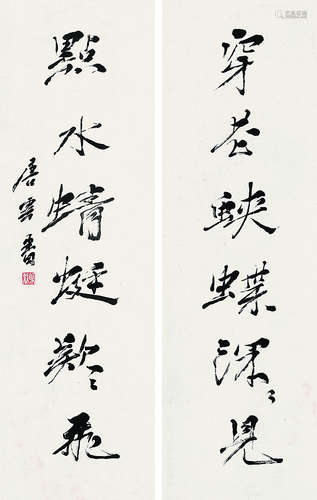 穿花蛱蝶深〻見
點水蜻蜓款〻飛
唐雲書